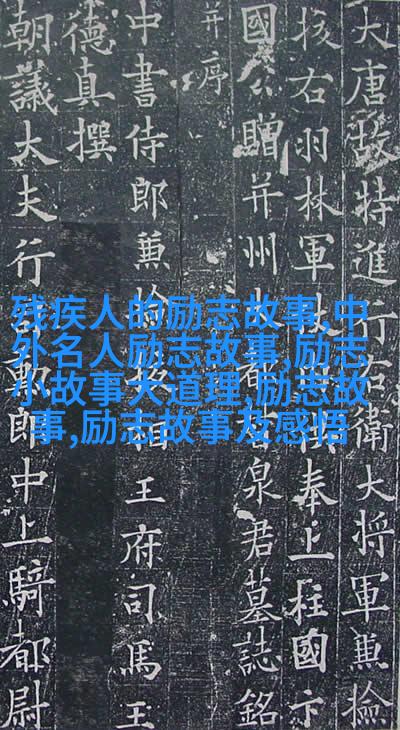 大唐故特進行右衛大將軍兼撿
挍右羽林軍仗供奉上柱國卞
國公贈并州大都督泉君墓誌銘
并序
中書侍郎兼撿挍相王府司馬王
德真撰
朝議大夫行勳郎中上騎都尉
残疾人的励志故事,中
外名人励志故事,励志
小故事大道理,励志故
事,励志故事及感悟